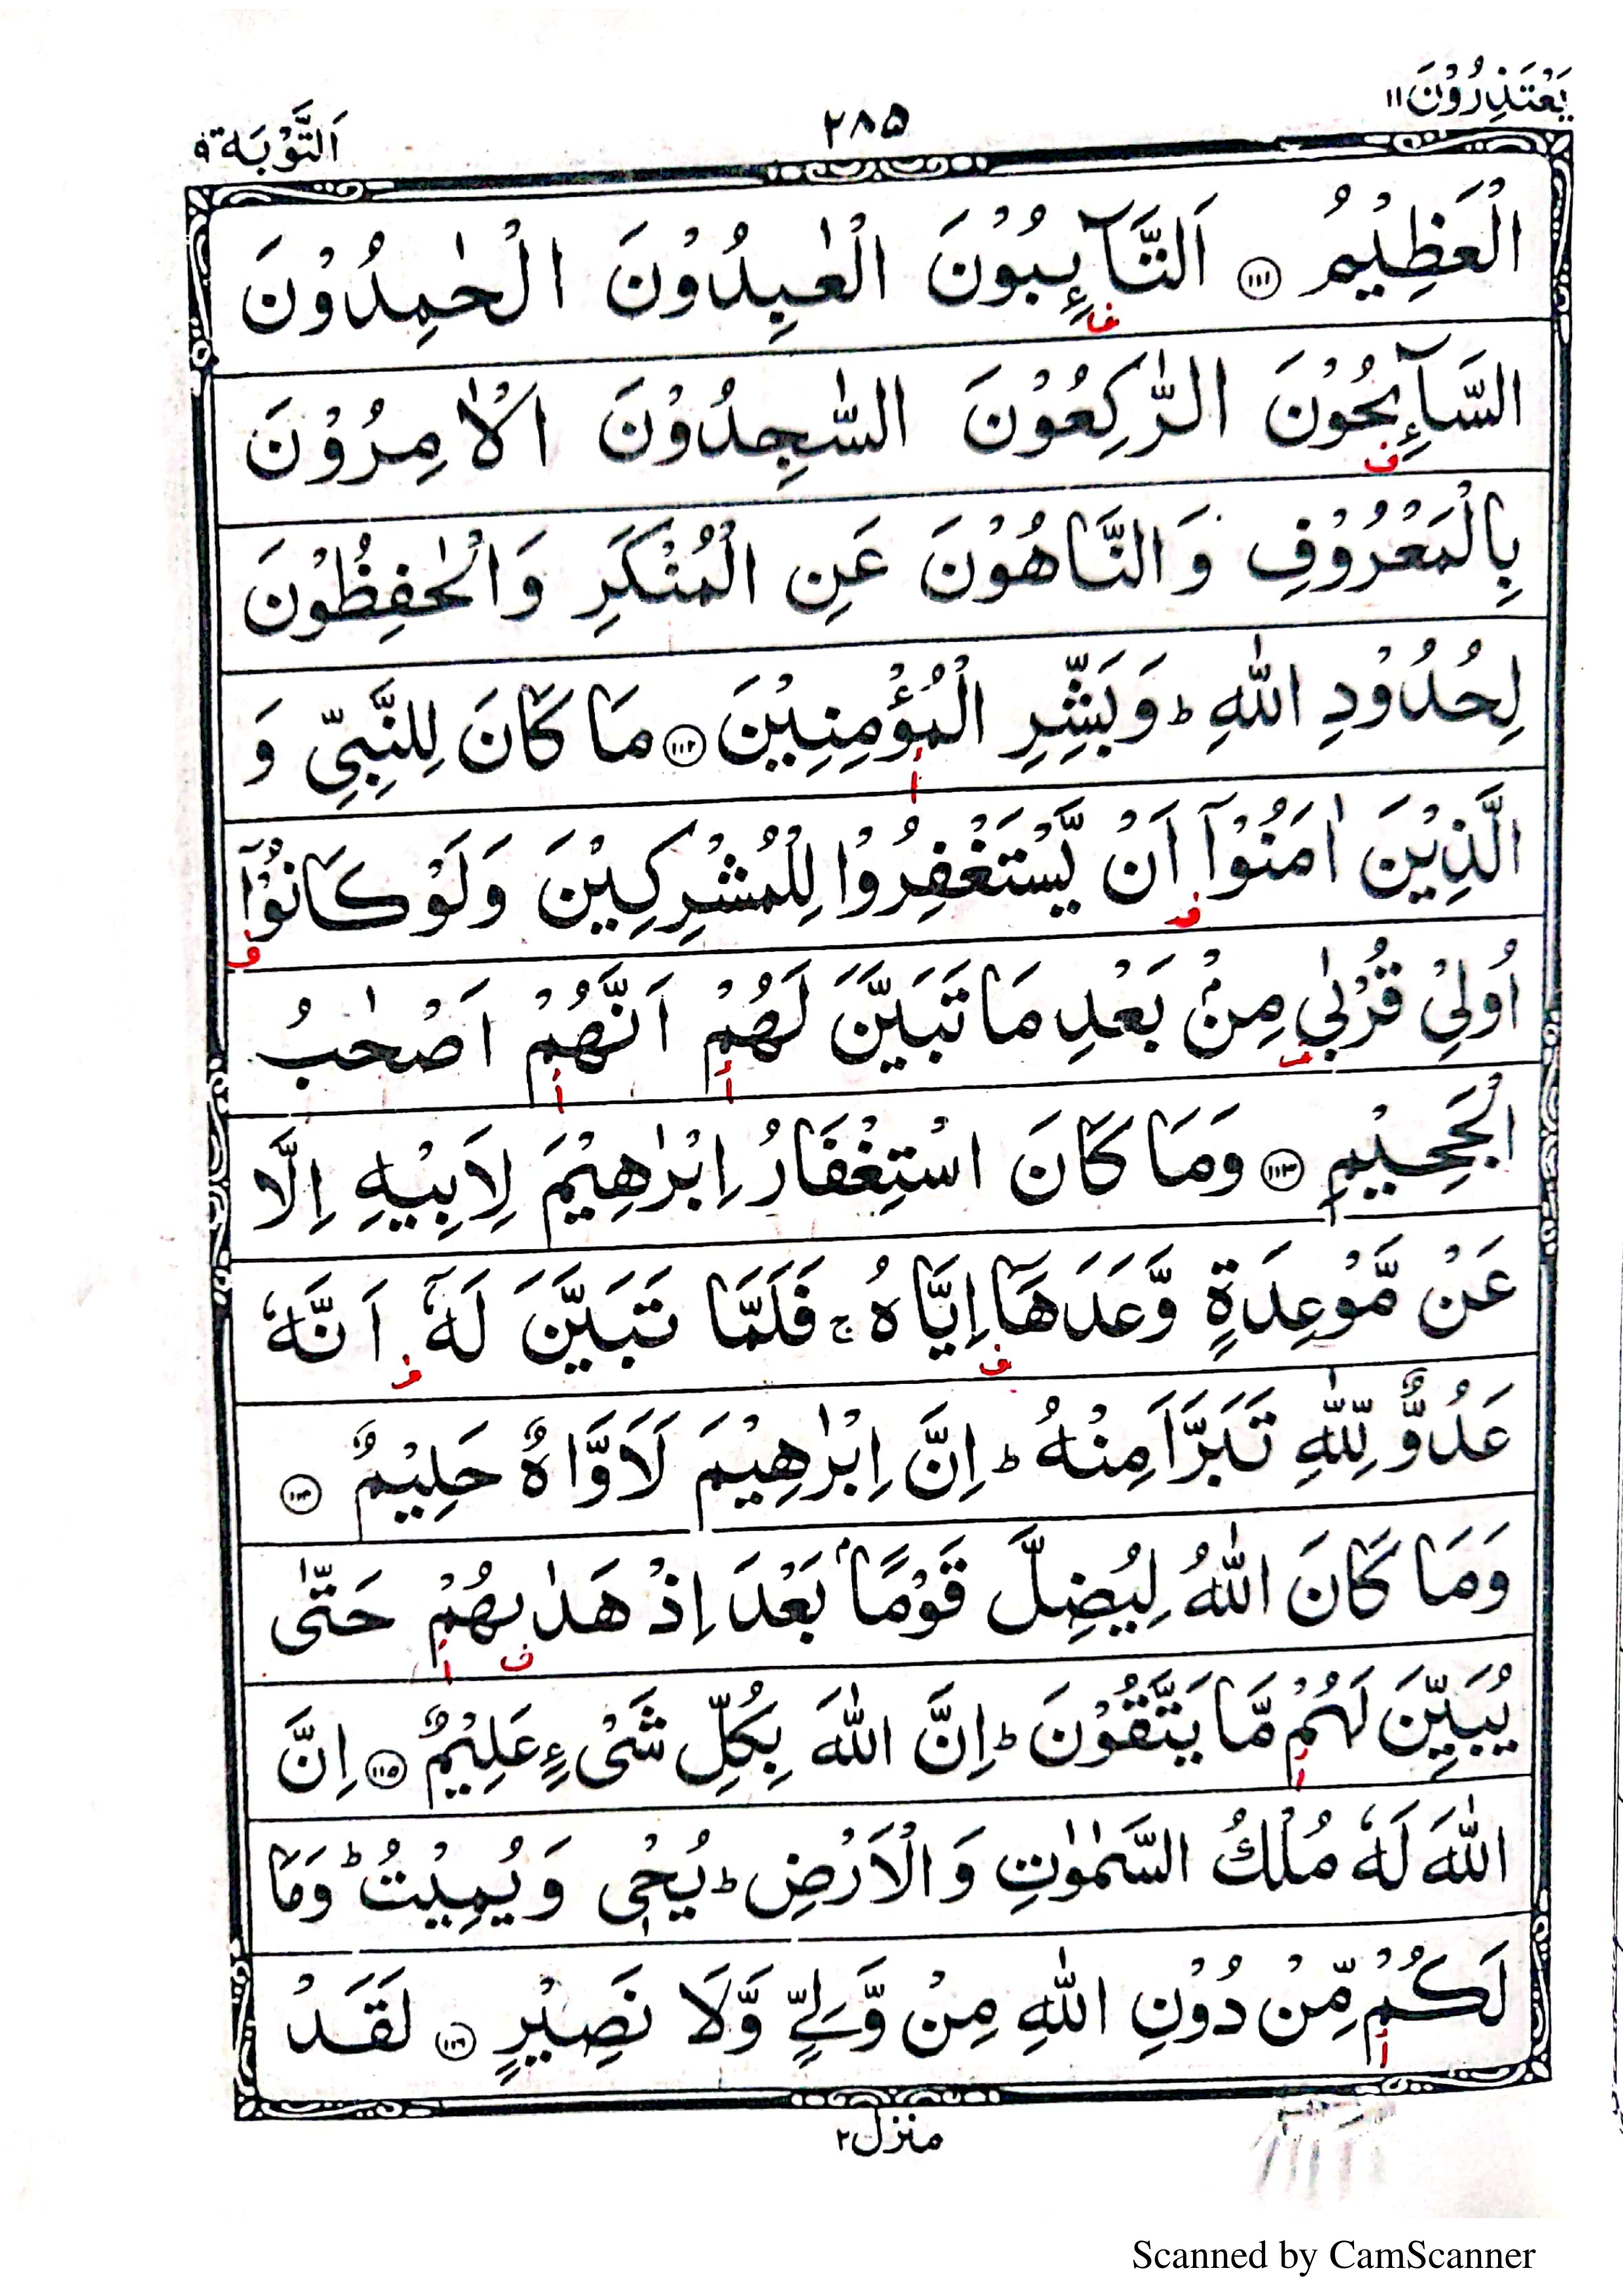 يَعْتَذِرُوْنَ ١١
٢٨٥
اَلتَّوْبَة ٩
الْعَظِيْمُ ﴿١١١﴾ اَلتَّآئِبُوْنَ الْعٰبِدُوْنَ الْحٰمِدُوْنَ
السَّآئِحُوْنَ الرّٰكِعُوْنَ السّٰجِدُوْنَ الْاٰمِرُوْنَ
بِالْمَعْرُوْفِ وَالنَّاهُوْنَ عَنِ الْمُنْكَرِ وَالْحٰفِظُوْنَ
لِحُدُوْدِ اللّٰهِ ؕ وَبَشِّرِ الْمُؤْمِنِيْنَ ﴿١١٢﴾ مَا كَانَ لِلنَّبِيِّ وَ
الَّذِيْنَ اٰمَنُوْۤا اَنْ يَّسْتَغْفِرُوْا لِلْمُشْرِكِيْنَ وَلَوْ كَانُوْۤا
اُولِيْ قُرْبٰي مِنْۢ بَعْدِ مَا تَبَيَّنَ لَهُمْ اَنَّهُمْ اَصْحٰبُ
الْجَحِيْمِ ﴿١١٣﴾ وَمَا كَانَ اسْتِغْفَارُ اِبْرٰهِيْمَ لِاَبِيْهِ اِلَّا
عَنْ مَّوْعِدَةٍ وَّعَدَهَاۤ اِيَّاهُ ۚ فَلَمَّا تَبَيَّنَ لَهٗۤ اَنَّهٗ
عَدُوٌّ لِّلّٰهِ تَبَرَّاَ مِنْهُ ؕ اِنَّ اِبْرٰهِيْمَ لَاَوَّاهٌ حَلِيْمٌ ﴿١١٤﴾
وَمَا كَانَ اللّٰهُ لِيُضِلَّ قَوْمًاۢ بَعْدَ اِذْ هَدٰىهُمْ حَتّٰى
يُبَيِّنَ لَهُمْ مَّا يَتَّقُوْنَ ؕ اِنَّ اللّٰهَ بِكُلِّ شَيْءٍ عَلِيْمٌ ﴿١١٥﴾ اِنَّ
اللّٰهَ لَهٗ مُلْكُ السَّمٰوٰتِ وَالْاَرْضِ ؕ يُحْيٖ وَيُمِيْتُ ؕ وَمَا
لَكُمْ مِّنْ دُوْنِ اللّٰهِ مِنْ وَّلِيٍّ وَّلَا نَصِيْرٍ ﴿١١٦﴾ لَقَدْ
منزل ٢
Scanned by CamScanner